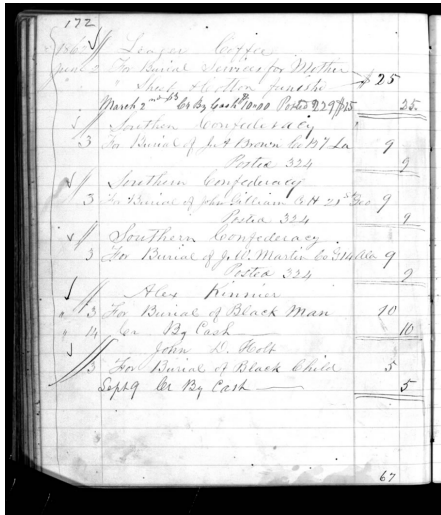 172
For Burial Services for Mother
$25
March 2nd Cr By Cash 10.00 Posted 229 $15 25
Southern Confederacy
3 For Burial of J A Brown Co 47 La 9
Posted 324 9
Southern Confederacy
3 For Burial of John Gilliam Co H 21st Geo 9
Posted 324 9
Southern Confederacy
3 For Burial of J. W. Martin Co Ala 9
Posted 324 9
Alex Kinnier
" 3 For Burial of Black Man 10
" 14 Cr By Cash 10
John D. Holt
3 For Burial of Black Child 5
Sept 9 Cr By Cash 5
67